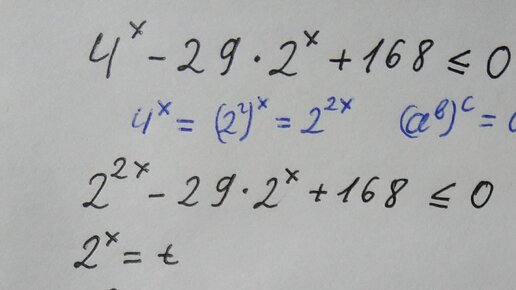 4^x - 29 · 2^x + 168 ≤ 0
4^x = (2^2)^x = 2^{2x} (a^b)^c =
2^{2x} - 29 · 2^x + 168 ≤ 0
2^x = t